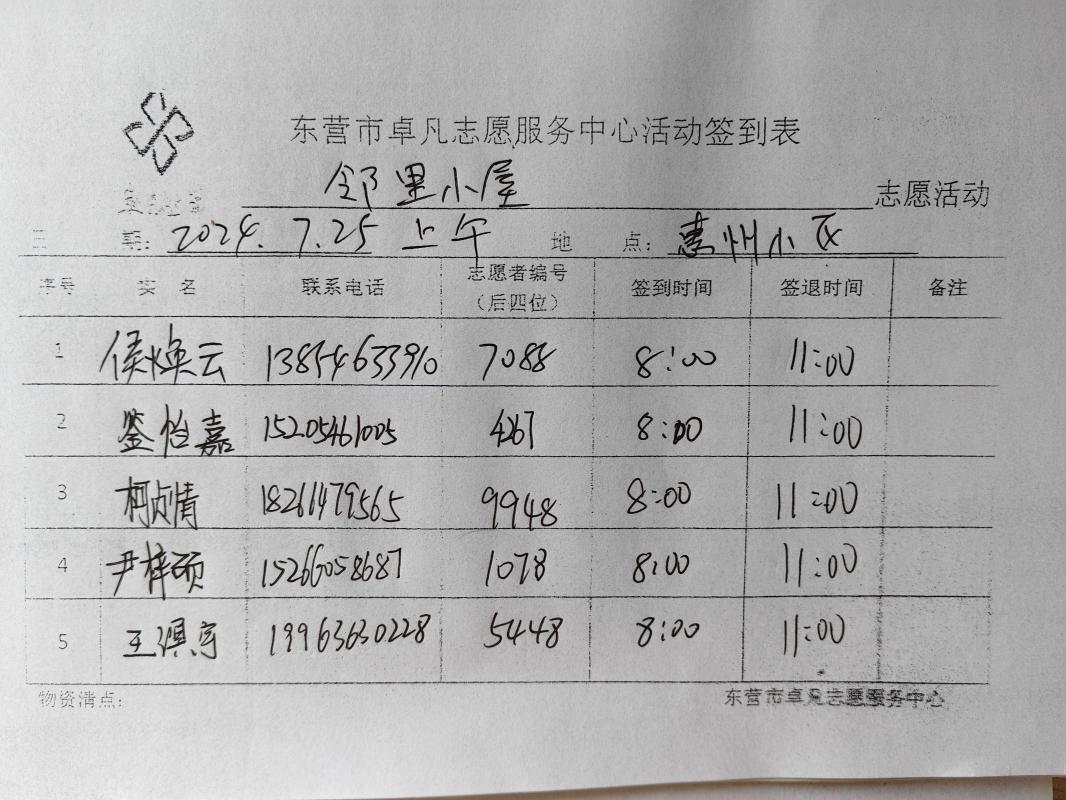 东营市卓凡志愿服务中心活动签到表
邻里小屋 志愿活动
日 期: 2024.7.25 上午 地 点: 惠州小区
序号 实 名 联系电话 志愿者编号(后四位) 签到时间 签退时间 备注
1 侯焕云 13854633910 7088 8:00 11:00
2 鉴怡嘉 15205461005 4267 8:00 11:00
3 柯贞情 18261479565 9948 8:00 11:00
4 尹梓硕 15266058687 1078 8:00 11:00
5 王淏宇 19963630228 5448 8:00 11:00
物资清点: 东营市卓凡志愿服务中心